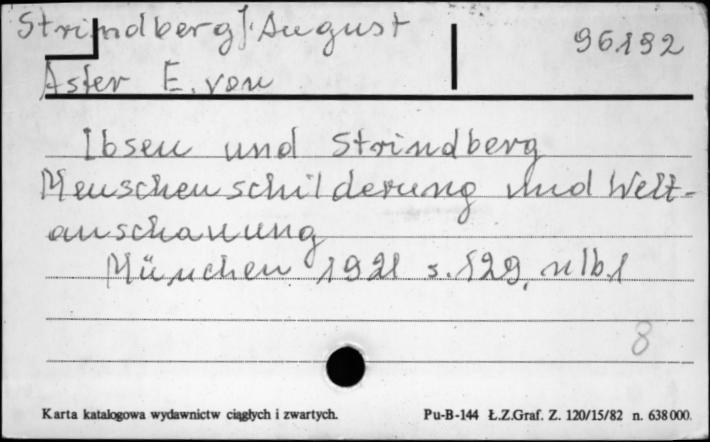 Strindberg J. August
96.192
Aster E. von
Ibsen und Strindberg
Menschenschilderung und Welt-
anschauung
München 1921 s. 129, nlb. 1
8
Karta katalogowa wydawnictw ciągłych i zwartych. Pu-B-144 Ł.Z.Graf. Z. 120/15/82 n. 638 000.